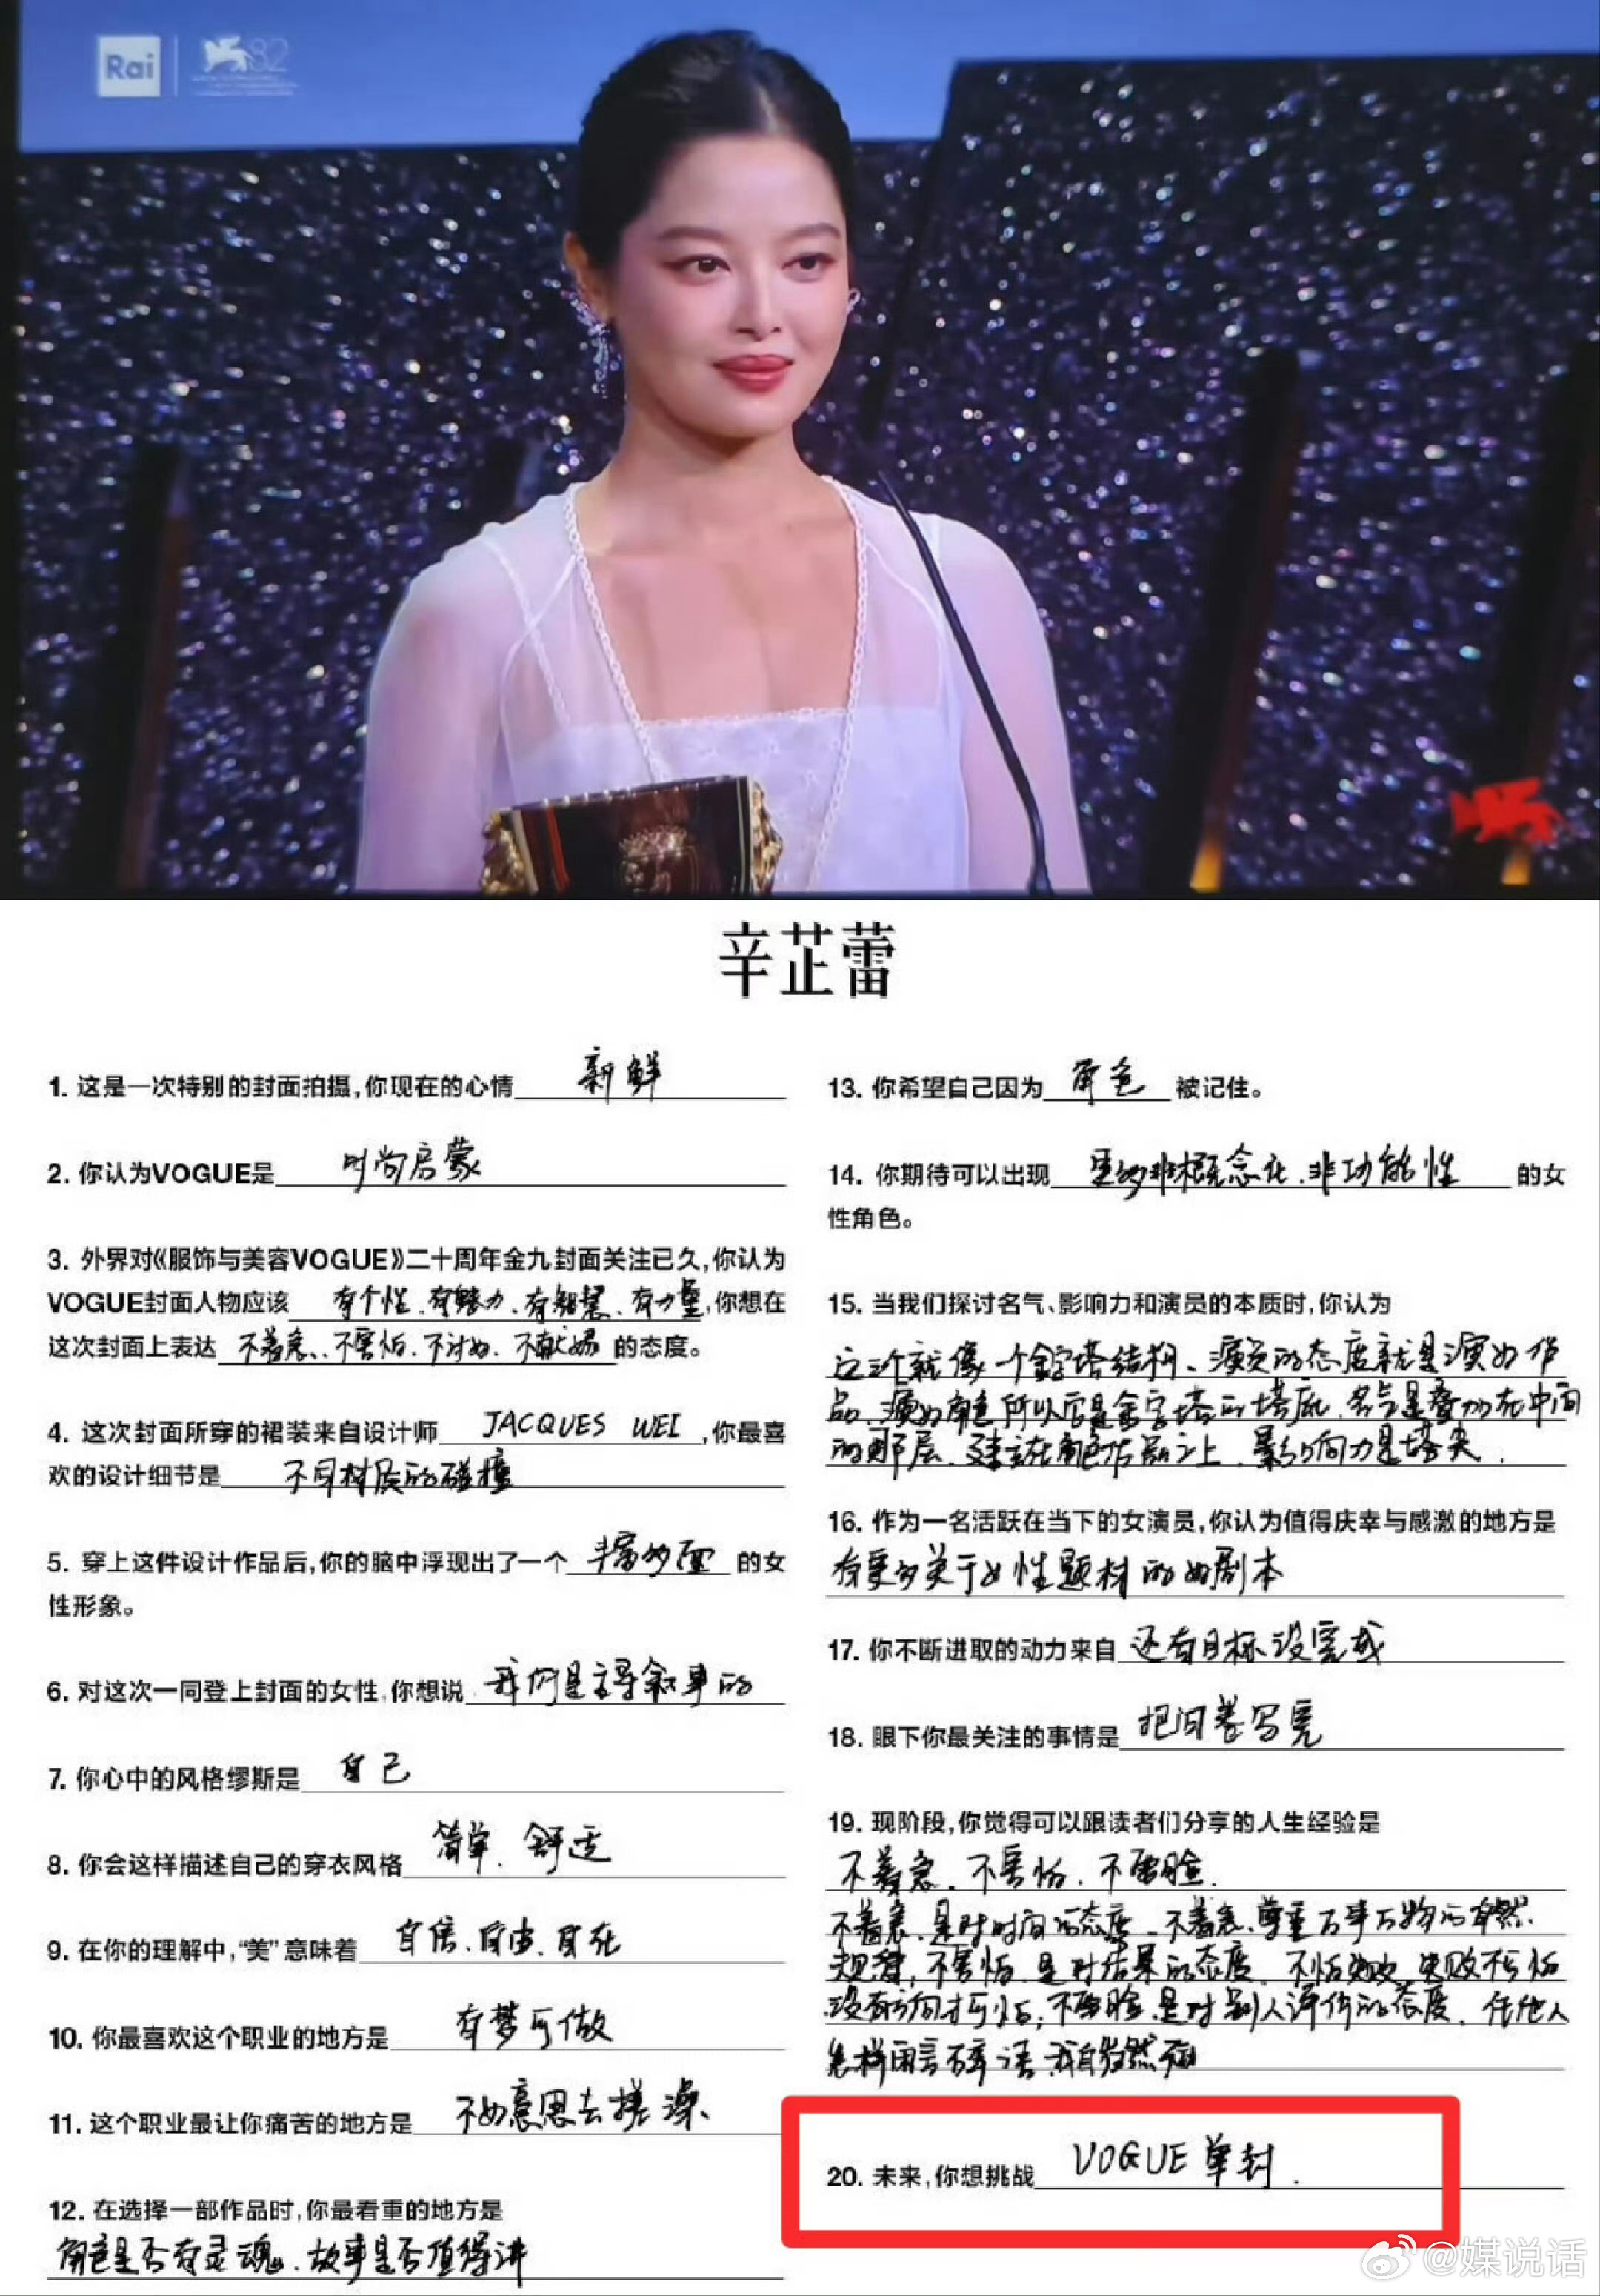 Rai
82
辛芷蕾
1. 这是一次特别的封面拍摄,你现在的心情 新鲜
2. 你认为VOGUE是 时尚启蒙
3. 外界对《服饰与美容VOGUE》二十周年金九封面关注已久,你认为
VOGUE封面人物应该 有个性、有魅力、有智慧、有力量,你想在
这次封面上表达 不着急、不害怕、不讨好、不献媚 的态度。
4. 这次封面所穿的裙装来自设计师 JACQUES WEI ,你最喜
欢的设计细节是 不同材质的碰撞
5. 穿上这件设计作品后,你的脑中浮现出了一个 丰富多面 的女
性形象。
6. 对这次一同登上封面的女性,你想说 我们是主导叙事的
7. 你心中的风格缪斯是 自己
8. 你会这样描述自己的穿衣风格 简单、舒适
9. 在你的理解中,“美”意味着 自信、自由、自在
10. 你最喜欢这个职业的地方是 有梦可做
11. 这个职业最让你痛苦的地方是 不好意思去搓澡、
12. 在选择一部作品时,你最看重的地方是
角色是否有灵魂、故事是否值得讲
13. 你希望自己因为 角色 被记住。
14. 你期待可以出现 更多非概念化、非功能性 的女
性角色。
15. 当我们探讨名气、影响力和演员的本质时,你认为
这三个就像一个金字塔结构、演员的态度就是演好作
品、演好角色所以它是金字塔的塔底、名气是叠加在中间
的那层、建立在角色作品之上、影响力是塔尖.
16. 作为一名活跃在当下的女演员,你认为值得庆幸与感激的地方是
有更多关于女性题材的好剧本
17. 你不断进取的动力来自 还有目标没完成
18. 眼下你最关注的事情是 把问卷写完
19. 现阶段,你觉得可以跟读者们分享的人生经验是
不着急、不害怕、不要脸.
不着急、是对时间的态度、不着急、尊重万事万物的自然
规律,不害怕、是对结果的态度、不怕失败、失败不可怕
没有方向才可怕;不要脸、是对别人评价的态度、任他人
怎样闲言碎语、我自岿然不动
20. 未来,你想挑战 VOGUE 单封.
@媒说话